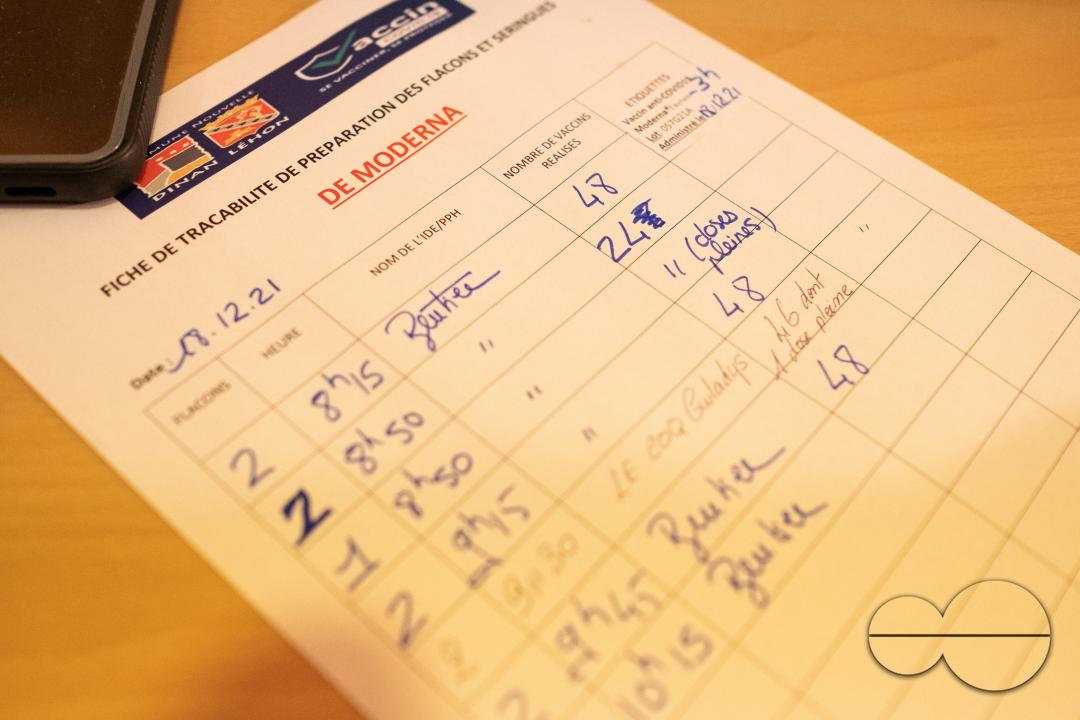 Vaccin
SE VACCINER, SE PROTÉGER
COMMUNE NOUVELLE
DINAN LÉHON
FICHE DE TRACABILITE DE PREPARATION DES FLACONS ET SERINGUES
DE MODERNA
Date : 18.12.21
FLACONS HEURE NOM DE L'IDE/PPH NOMBRE DE VACCINS REALISES ETIQUETTES
Vaccin anti-COVID19
Moderna
Lot 057G21A
Administré le 18.12.21
2 8h15 48
2 8h50 " 24
1 8h50 " " (doses pleines)
2 9h15 " 48 "
2 9h30 LE COQ 46 dont 1 dose pleine
2 9h45 48
10h15